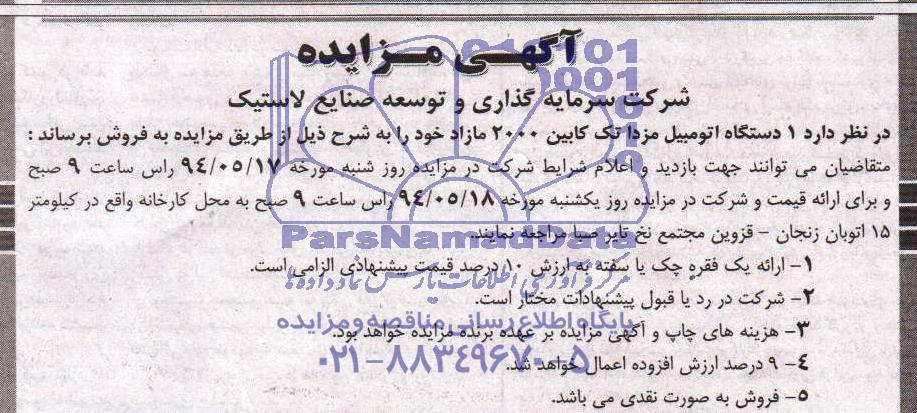 آگهـی مـزایده
شرکت سرمایه گذاری و توسعه صنایع لاستیک
در نظر دارد ۱ دستگاه اتومبیل مزدا تک کابین ۲۰۰۰ مازاد خود را به شرح ذیل از طریق مزایده به فروش برساند :
متقاضیان می توانند جهت بازدید و اعلام شرایط شرکت در مزایده روز شنبه مورخه ۹۴/۰۵/۱۷ راس ساعت ۹ صبح
و برای ارائه قیمت و شرکت در مزایده روز یکشنبه مورخه ۹۴/۰۵/۱۸ راس ساعت ۹ صبح به محل کارخانه واقع در کیلومتر
۱۵ اتوبان زنجان - قزوین مجتمع نخ تایر صبا مراجعه نمایند.
ParsNamadData
۱- ارائه یک فقره چک یا سفته به ارزش ۱۰ درصد قیمت پیشنهادی الزامی است.
مرکز فرآوری اطلاعات پارس نماد داده ها
۲- شرکت در رد یا قبول پیشنهادات مختار است.
پایگاه اطلاع رسانی مناقصه و مزایده
۳- هزینه های چاپ و آگهی مزایده بر عهده برنده مزایده خواهد بود.
۰۲۱-۸۸۳۴۹۶۷۰-۵
۴- ۹ درصد ارزش افزوده اعمال خواهد شد.
۵- فروش به صورت نقدی می باشد.